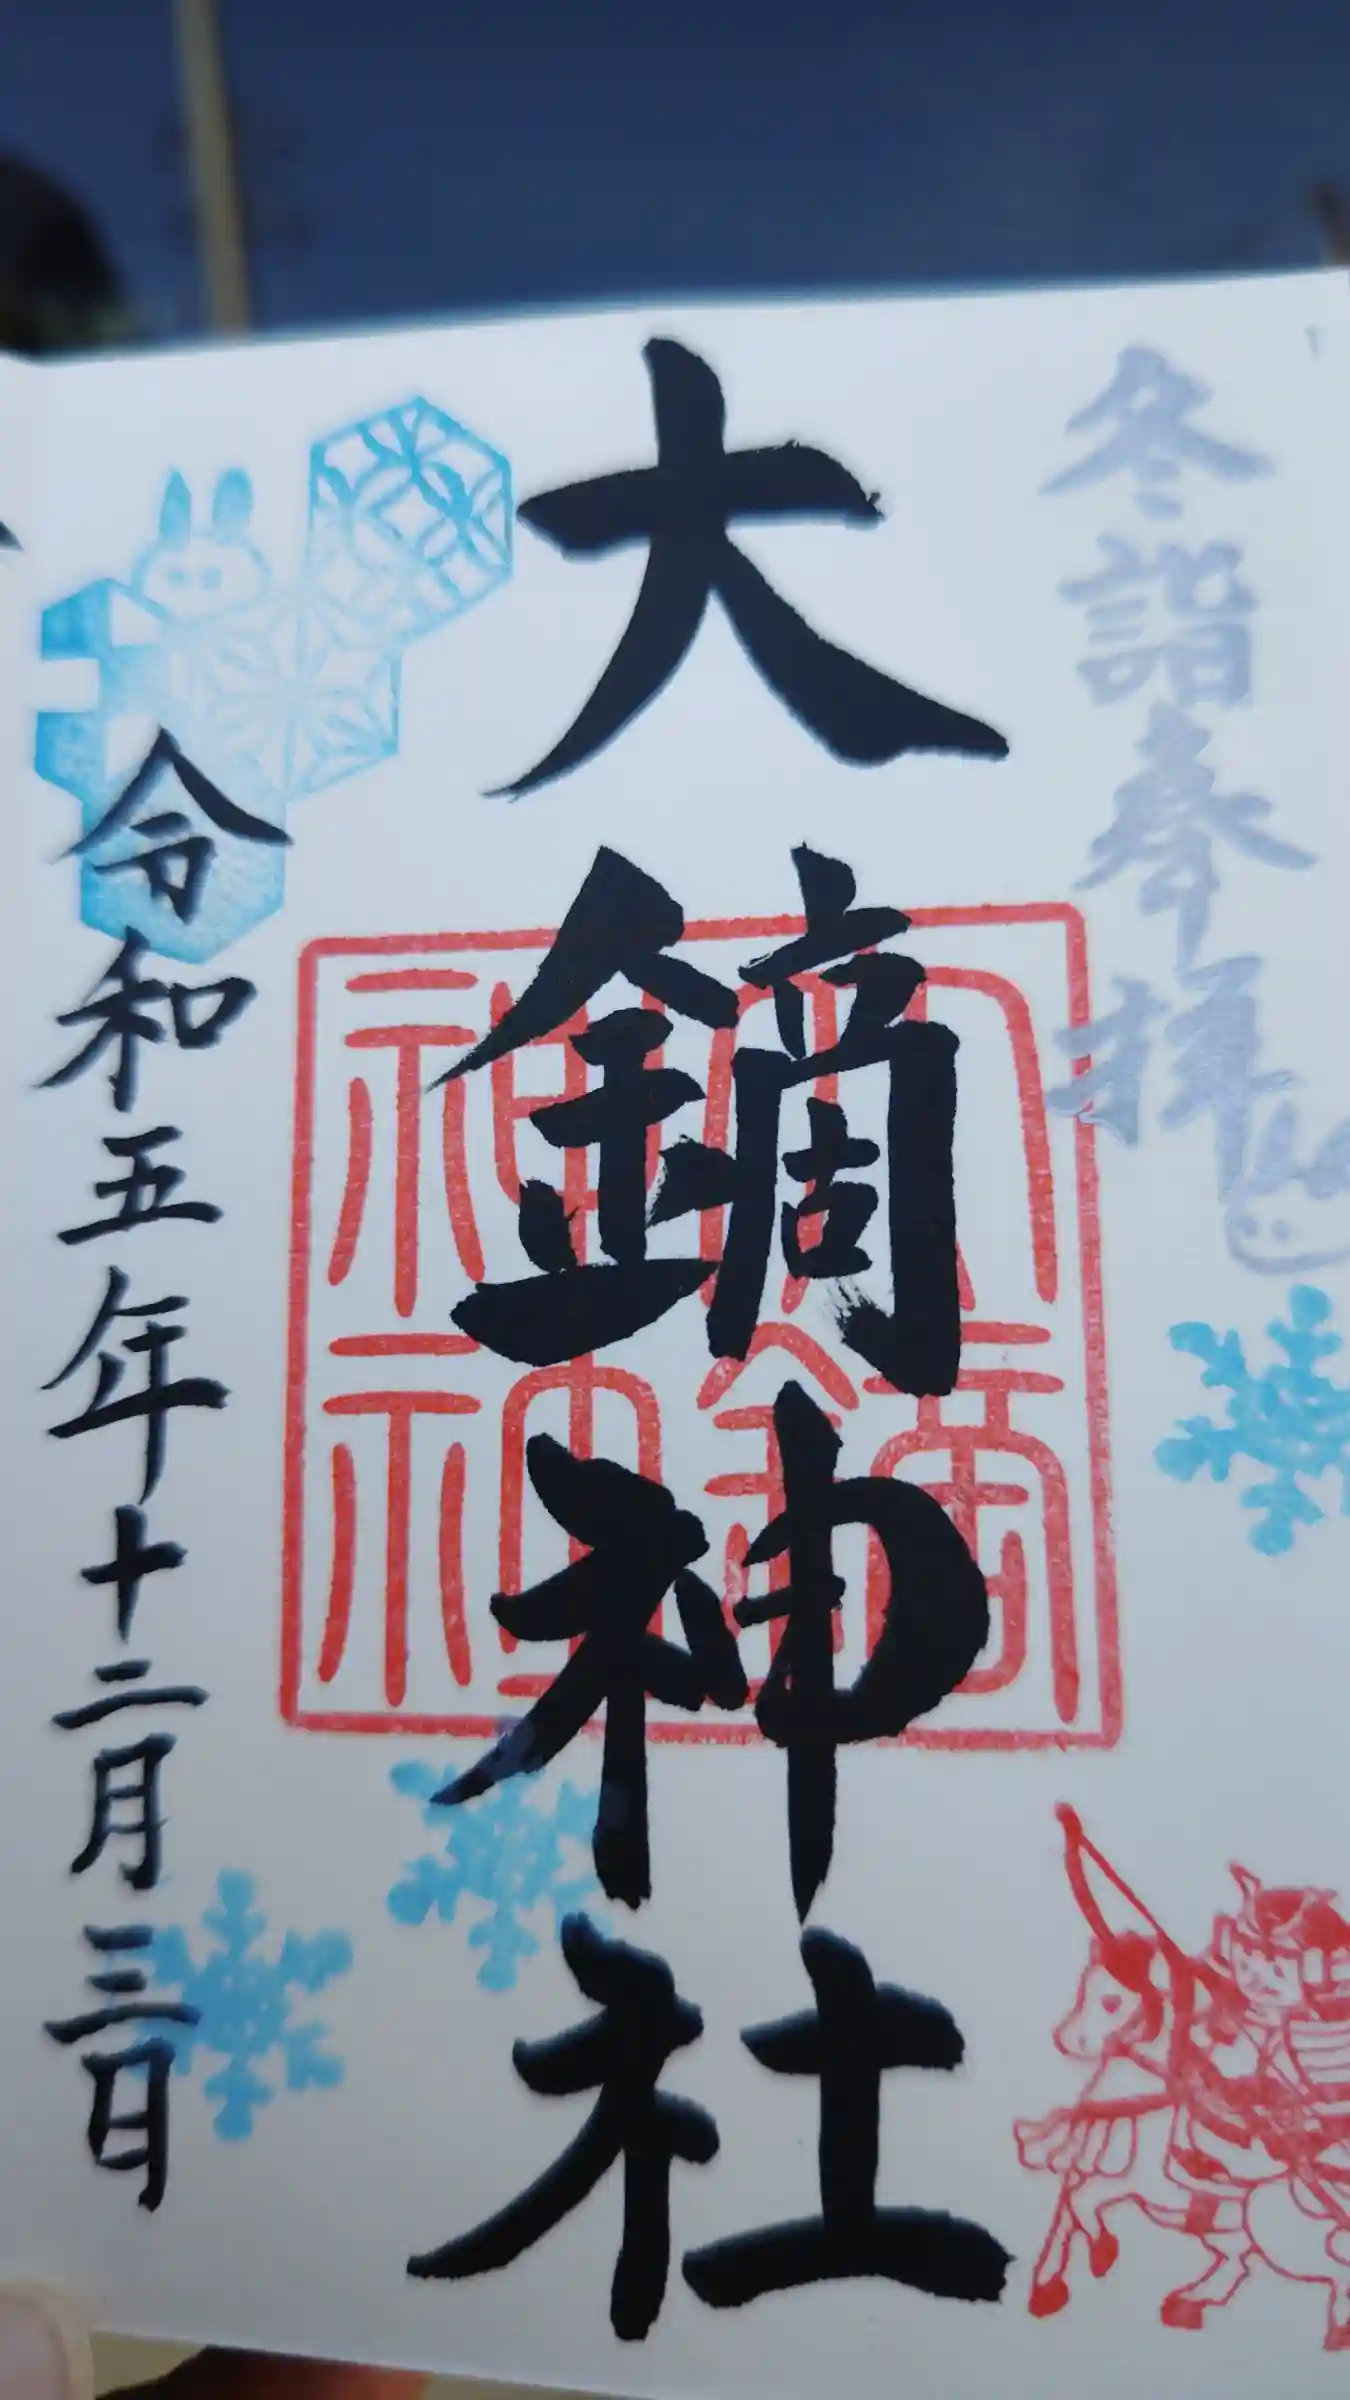 冬詣奉拝
大鏑神社
大鏑神神
令和五年十二月三日